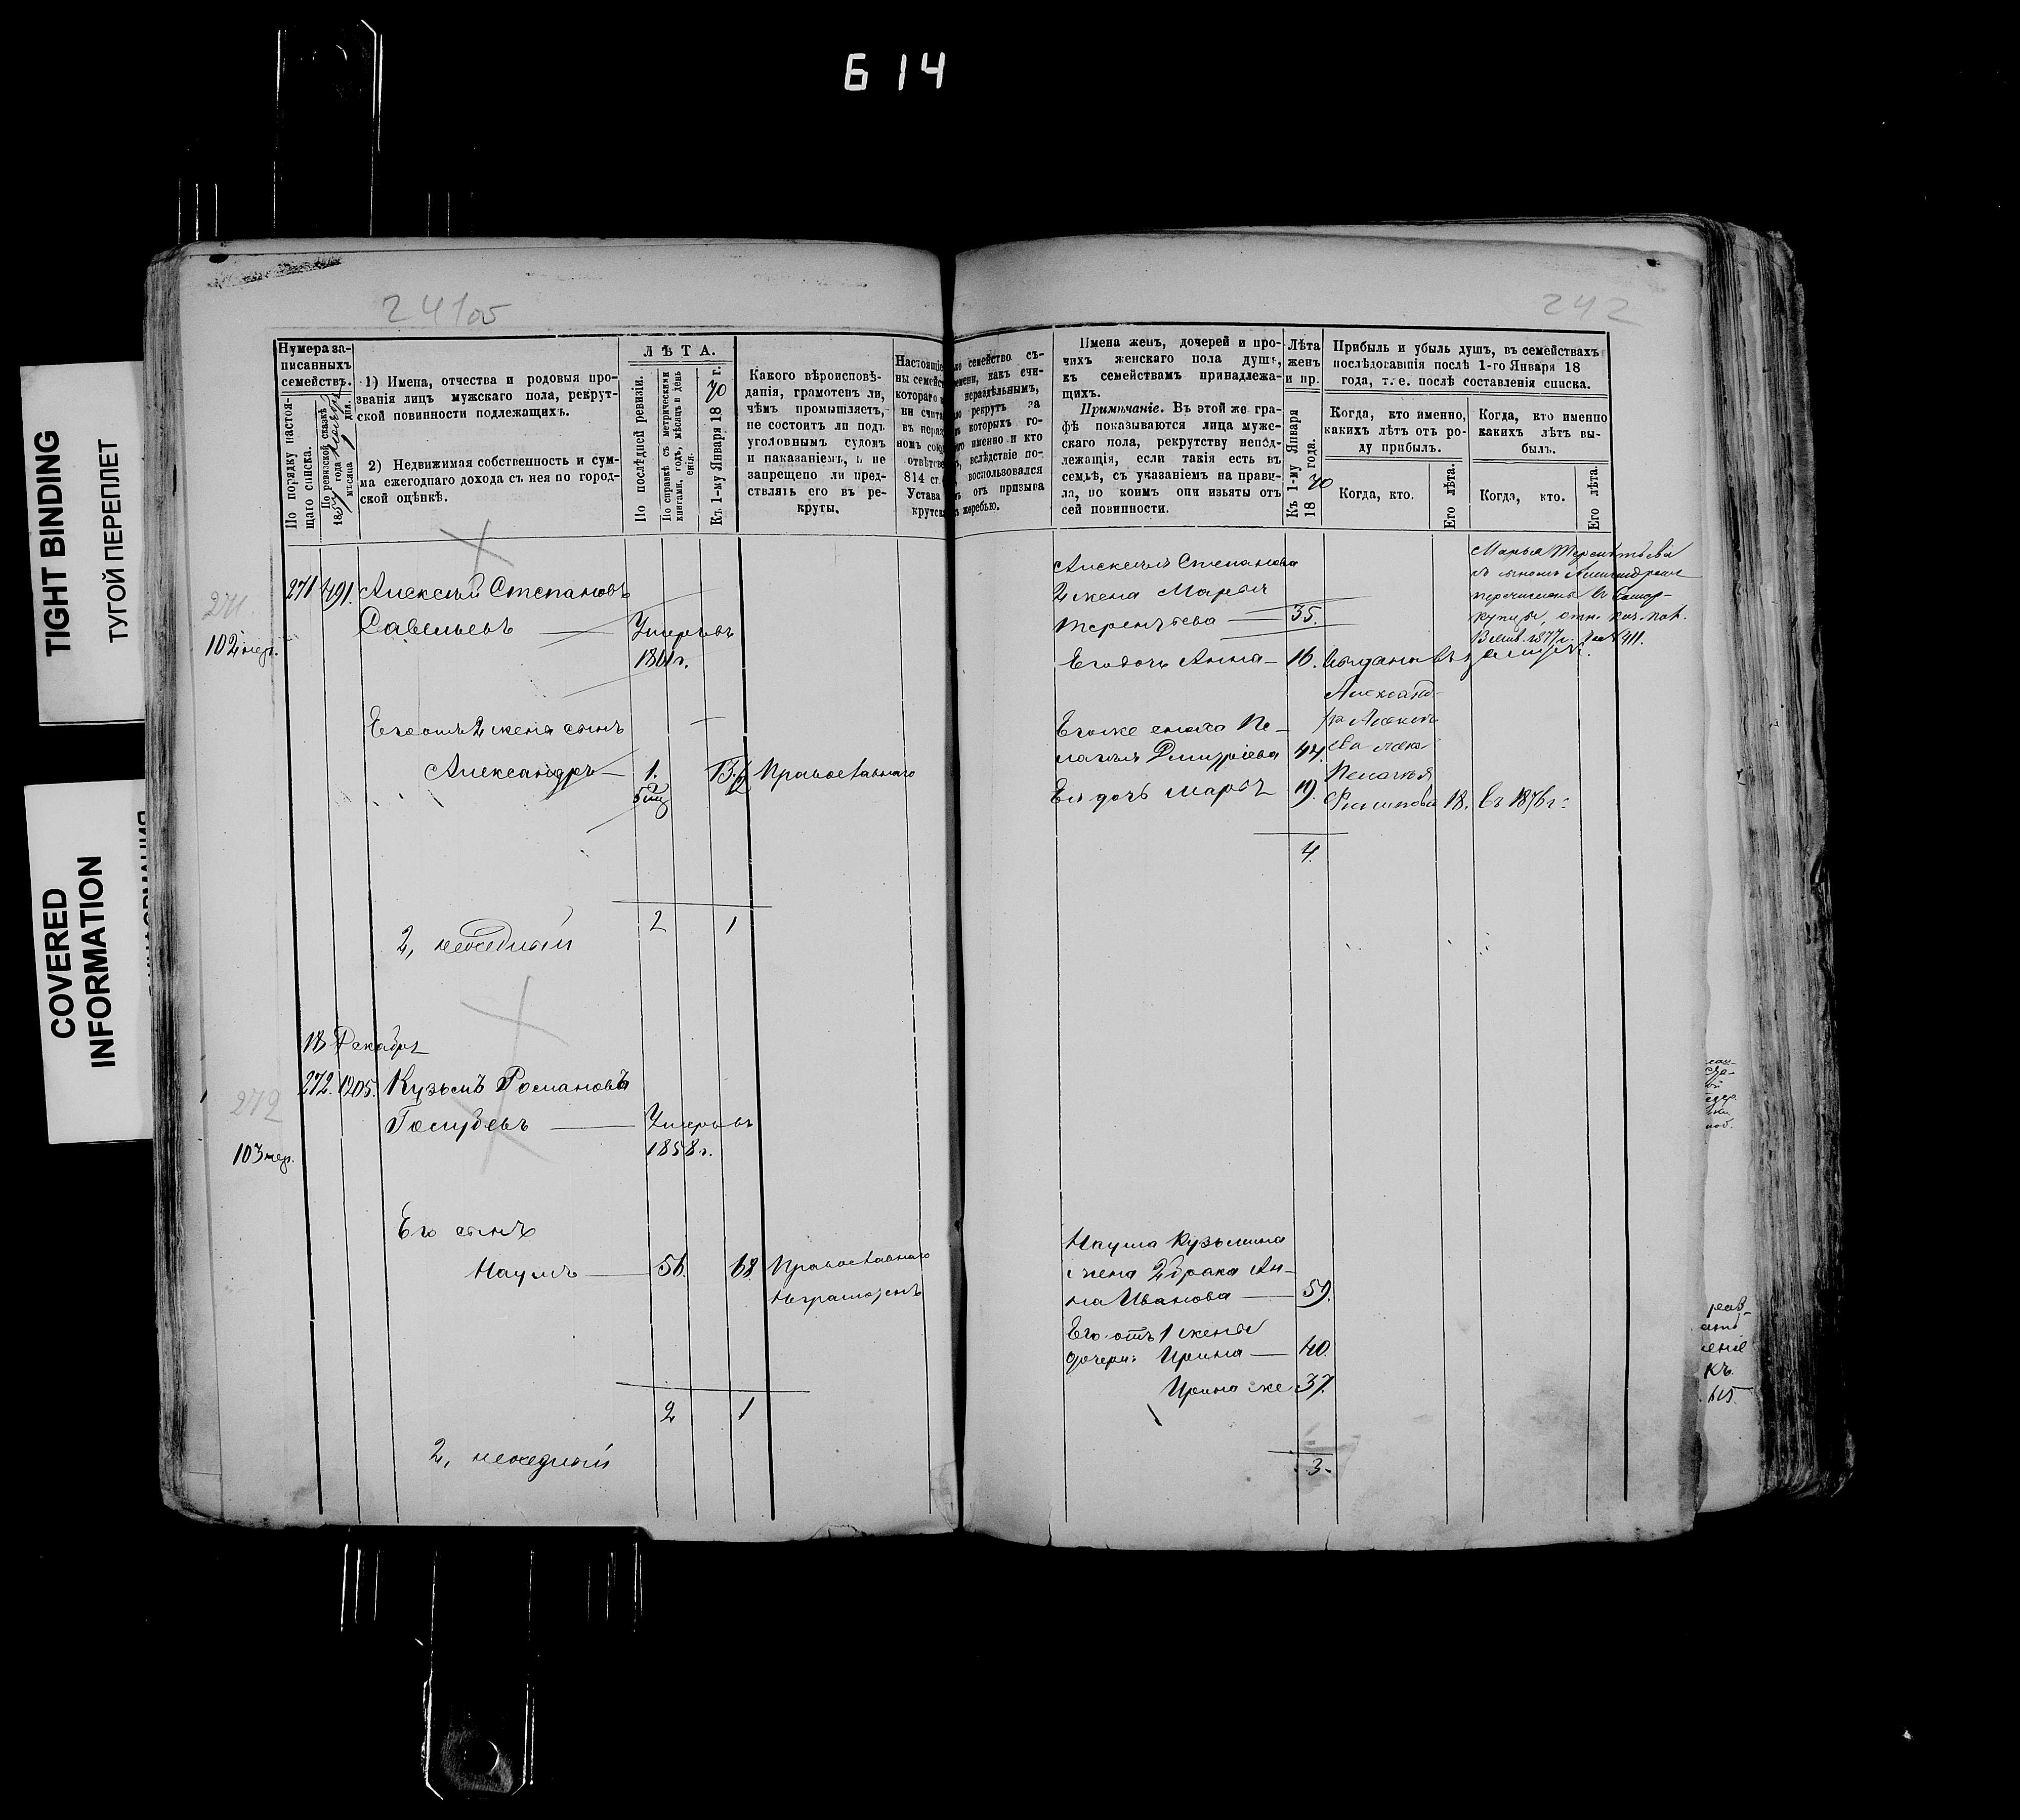 614
TIGHT BINDING
ТУГОЙ ПЕРЕПЛЕТ
COVERED
INFORMATION
241об
242
Нумера за-
писанныхъ
семействъ.
По порядку настоя-
щаго списка.
По ревизской сказкѣ
185 года
мѣсяца 1 дня.
1) Имена, отчества и родовыя про-
званія лицъ мужскаго пола, рекрут-
ской повинности подлежащихъ.
2) Недвижимая собственность и сум-
ма ежегоднаго дохода съ нея по город-
ской оцѣнкѣ.
ЛѢТА.
По послѣдней ревизіи.
По справкѣ съ метрическими
книгами, годъ, мѣсяцъ и день
енія.
Къ 1-му Января 1870 г.
Какого вѣроисповѣ-
данія, грамотенъ ли,
чѣмъ промышляетъ,
не состоитъ ли подъ
уголовнымъ судомъ
и наказаніемъ, и не
запрещено ли пред-
ставлять его въ ре-
круты.
Настоящіе
ны семейст
котораго
ни счита
въ нераз
номъ
отвѣтств
814 ст.
Устава
крутск
семейство съ-
емени, какъ счи-
нераздѣльнымъ,
рекрутъ за
которыхъ го-
именно и кто
вслѣдствіе по-
воспользовался
отъ призыва
жеребью.
Имена женъ, дочерей и про-
чихъ женскаго пола душъ,
къ семействамъ принадлежа-
щихъ.
Примѣчаніе. Въ этой же гра-
фѣ показываются лица муже-
скаго пола, рекрутству непод-
лежащія, если такія есть въ
семьѣ, съ указаніемъ на прави-
ла, по коимъ они изьяты отъ
сей повинности.
Лѣта
женъ
и пр.
Къ 1-му Января
1870 года.
Прибыль и убыль душъ, въ семействахъ
послѣдовавшія послѣ 1-го Января 18
года, т. е. послѣ составленія списка.
Когда, кто именно,
какихъ лѣтъ отъ ро-
ду прибылъ.
Когда, кто.
Его лѣта.
Когда, кто именно
какихъ лѣтъ вы-
былъ.
Когда, кто.
Его лѣта.
271.
102 мер.
271 491. Алексѣй Степановъ
Савельевъ — Умеръ въ
1861 г.
Его отъ 2 жены сынъ
Александръ — 1. Православнаго
2 1
2, неоседлый
Алексѣя Степанова
2 жена Марья
Терентьева — 35.
Его дочь Анна — 16.
Его же сноха Пе-
лагея Дмитріева 44.
Ея дочь Марья 19.
4.
Александ-
ра Алексѣ
ева жена
Пелагея
Филипова 18. въ 1876 г.
Марья Терентьева
съ сыномъ Александромъ
перечислены въ Самар-
купцы, отн. каз. пал.
18 Декабря
272
103 мер.
272. 1205. Кузьмъ Романовъ
Голубевъ — Умеръ въ
1858 г.
Его сынъ
Наумъ — 56. 68. Православнаго
Неграмотенъ
2 1
2, неоседлый
Наума Кузьмина
жена 2 брака Ан-
на Иванова — 59.
Его отъ 1 жены
дочери: Ирина — 40.
Ирина же 37.
3.